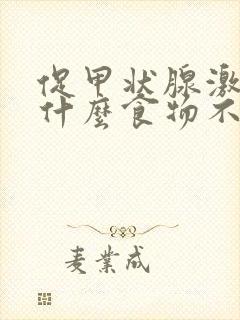 促甲状腺激
什麼食物不
麦業成